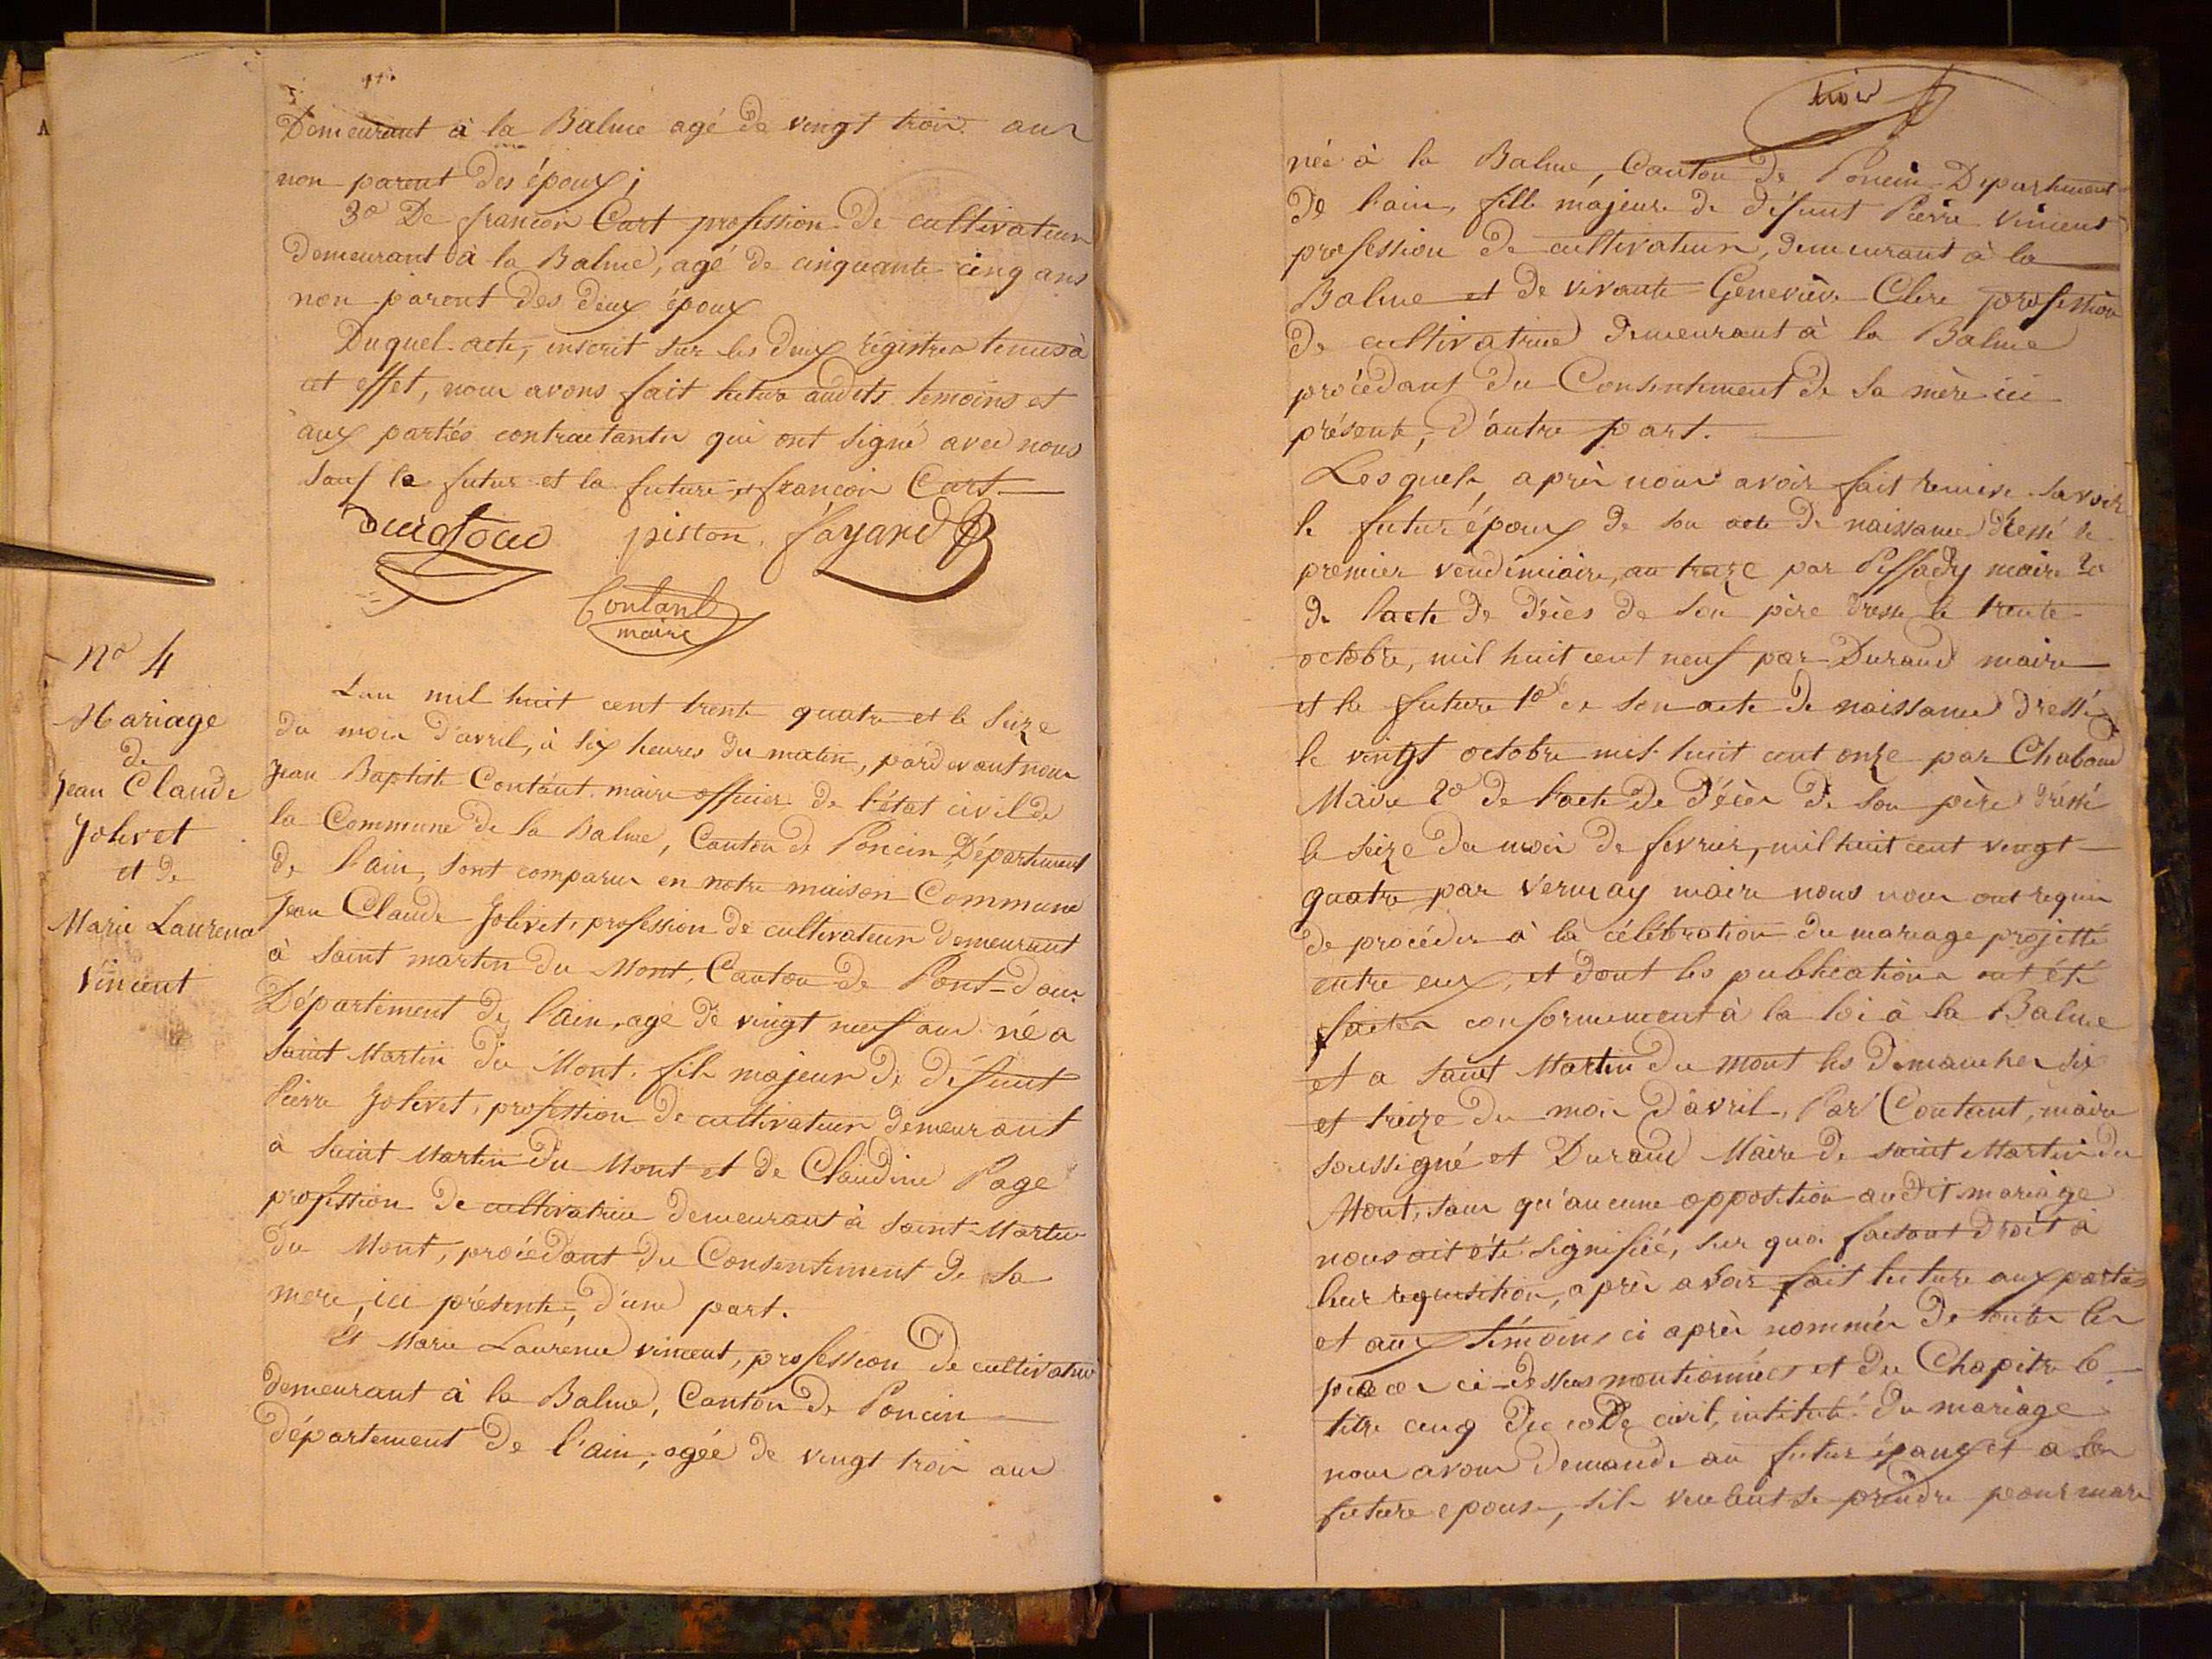 Demeurant à la Balme agé de vingt trois ans
non parent des époux ;
3º De françois Cart profession de cultivateur
demeurant à la Balme, agé de cinquante cinq ans
non parent des deux époux
Duquel acte, inscrit sur les deux régistres tenus à
cet effet, nous avons fait lecture audits temoins et
aux parties contractantes qui ont signé avec nous
sauf le futur et la future et françois Cart
piston fayard
Contant
maire
nº 4
Mariage
de
Jean Claude
Jolivet
et de
Marie Laurence
Vincent
L'an mil huit cent trente quatre et le seize
du mois d'avril, à six heures du matin, pardevant nous
Jean Baptiste Contant maire officier de l'état civil de
la Commune de la Balme, Canton de Poncin, Département
de l'ain, sont comparus en notre maison Commune
Jean Claude Jolivet, profession de cultivateur demeurant
à Saint martin du Mont, Canton de Pont-d'ain
Département de l'ain, agé de vingt neuf ans né a
Saint Martin du Mont, fils majeur de défunt
Pierre Jolivet, profession de cultivateur demeurant
à Saint Martin du Mont et de Claudine Page
profession de cultivatrice demeurant à Saint Martin
du Mont, procédant du Consentement de sa
mere, ici présente, d'une part.
Et Marie Laurence vincent, profession de cultivatrice
demeurant à la Balme, Canton de Poncin
département de l'ain, agée de vingt trois ans
trois
née à la Balme, Canton de Poncin Département
de l'ain, fille majeure de défunt Pierre Vincent
profession de cultivateur, demeurant à la
Balme et de vivante Geneviève Clerc profession
de cultivatrice demeurant à la Balme
procédant du Consentement de sa mère ici
présente, d'autre part.
Lesquels, après nous avoir fait remise savoir
le futur époux de son acte de naissance dressé le
premier vendémiaire, an treize par Pessady maire 2º
de l'acte de décès de son père dressé le trente
octobre, mil huit cent neuf par Durand maire
et la future 1º de son acte de naissance dressé
le vingt octobre mil huit cent onze par Chaboud
Maire 2º de l'acte de décès de son père dressé
le seize du mois de fevrier, mil huit cent vingt
quatre par Vernay maire nous nous ont requis
de procéder à la célébration du mariage projetté
entre eux, et dont les publications ont été
faites conformement à la loi à la Balme
et a Saint Martin du Mont les dimanches six
et treize du mois d'avril, Par Contant, maire
soussigné et Durand Maire de saint Martin du
Mont, sans qu'aucune opposition audit mariage
nous ait été signifiée, sur quoi faisant droit à
leur requisition, après avoir fait lecture aux parties
et aux témoins ci après nommés de toutes les
pièces ci-dessus mentionnées et du Chapitre 6
titre cinq du code civil, intitulé du mariage
nous avons demandé au futur époux et a la
future epouse, s'ils veulent se prendre pour mari